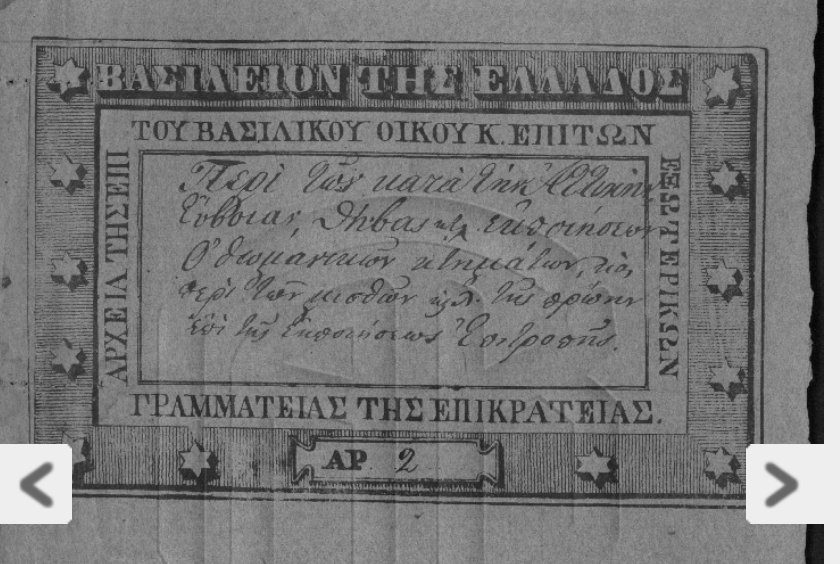 ΒΑΣΙΛΕΙΟΝ ΤΗΣ ΕΛΛΑΔΟΣ
ΤΟΥ ΒΑΣΙΛΙΚΟΥ ΟΙΚΟΥ Κ. ΕΠΙ ΤΩΝ
ΑΡΧΕΙΑ ΤΗΣ ΕΠΙ
Περὶ τῶν κατὰ τὴν Ἀττικὴν
Εὔβοιαν, Θήβας κτλ. ἐκποιήσεων
Ὀθωμανικῶν κτημάτων,
περὶ τῶν μισθῶν κτλ. τῆς πρώην
ἐπὶ τῆς ἐκποιήσεως Ἐπιτροπῆς.
ΕΞΩΤΕΡΙΚΩΝ
ΓΡΑΜΜΑΤΕΙΑΣ ΤΗΣ ΕΠΙΚΡΑΤΕΙΑΣ.
ΑΡ 2